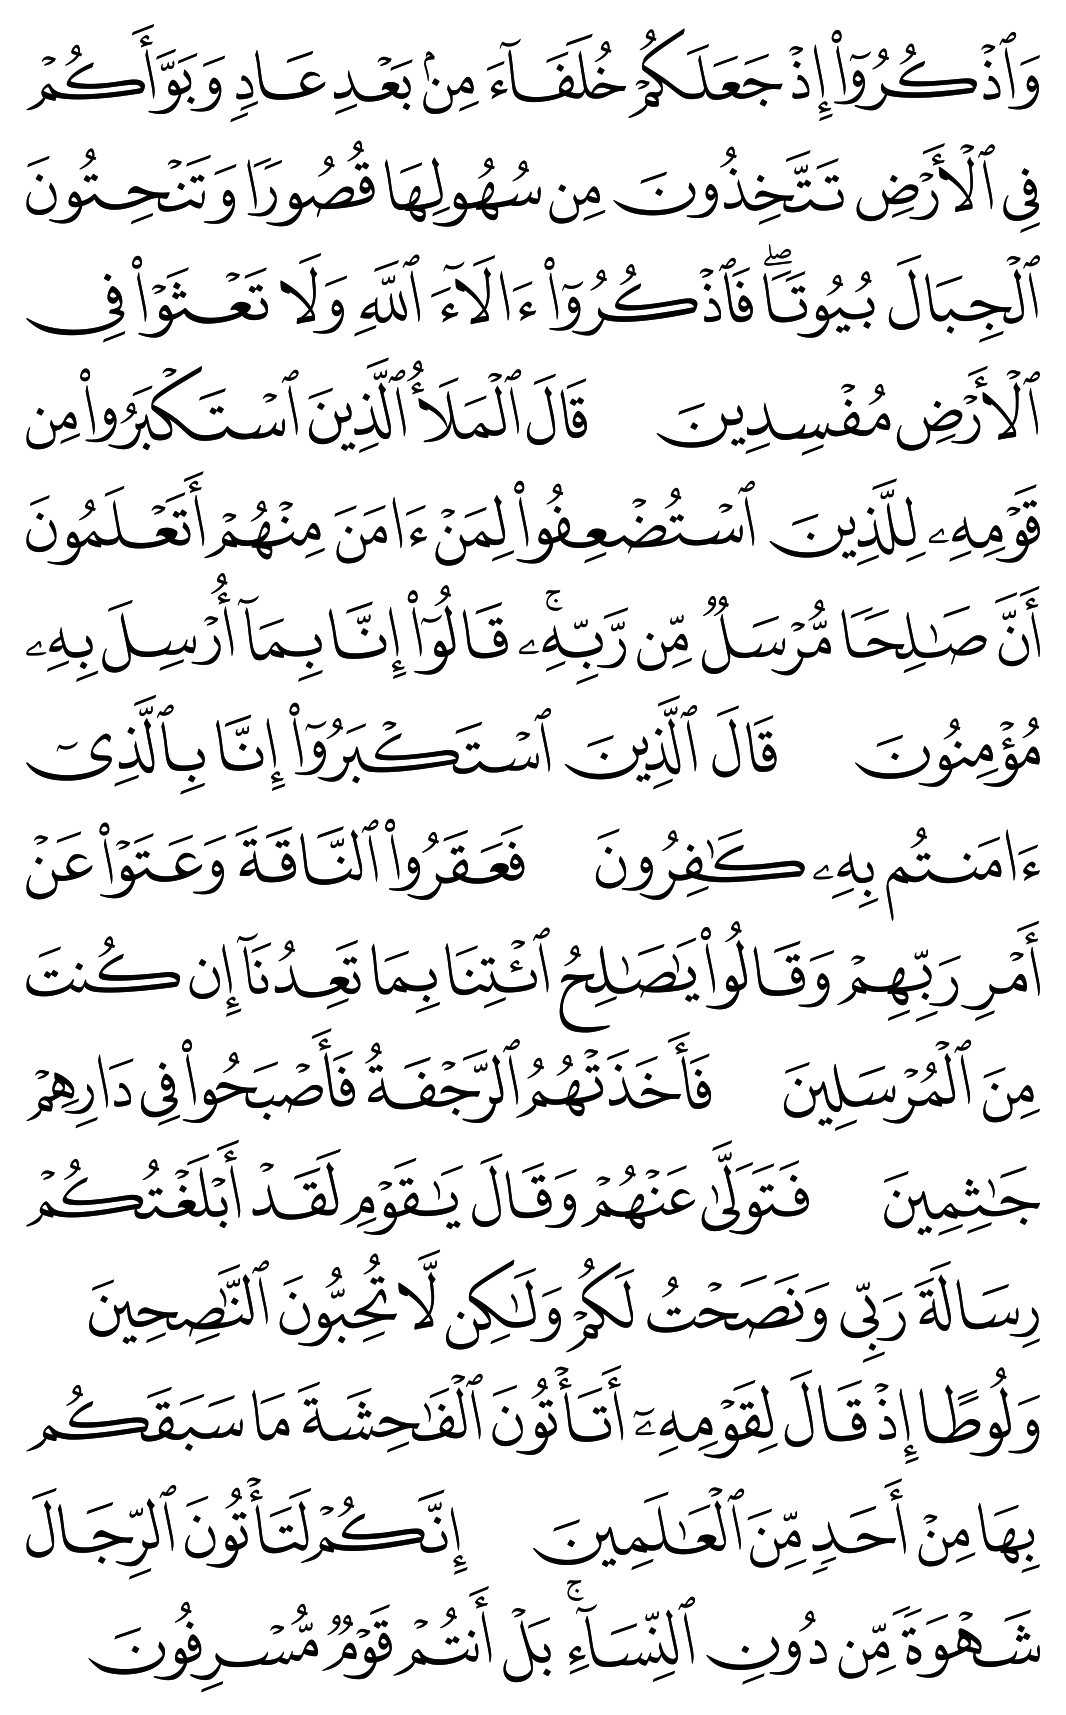 وَٱذۡكُرُوٓاْ إِذۡ جَعَلَكُمۡ خُلَفَآءَ مِنۢ بَعۡدِ عَادٖ وَبَوَّأَكُمۡ
فِي ٱلۡأَرۡضِ تَتَّخِذُونَ مِن سُهُولِهَا قُصُورٗا وَتَنۡحِتُونَ
ٱلۡجِبَالَ بُيُوتٗاۖ فَٱذۡكُرُوٓاْ ءَالَآءَ ٱللَّهِ وَلَا تَعۡثَوۡاْ فِي
ٱلۡأَرۡضِ مُفۡسِدِينَ قَالَ ٱلۡمَلَأُ ٱلَّذِينَ ٱسۡتَكۡبَرُواْ مِن
قَوۡمِهِۦ لِلَّذِينَ ٱسۡتُضۡعِفُواْ لِمَنۡ ءَامَنَ مِنۡهُمۡ أَتَعۡلَمُونَ
أَنَّ صَٰلِحٗا مُّرۡسَلٞ مِّن رَّبِّهِۦۚ قَالُوٓاْ إِنَّا بِمَآ أُرۡسِلَ بِهِۦ
مُؤۡمِنُونَ قَالَ ٱلَّذِينَ ٱسۡتَكۡبَرُوٓاْ إِنَّا بِٱلَّذِيٓ
ءَامَنتُم بِهِۦ كَٰفِرُونَ فَعَقَرُواْ ٱلنَّاقَةَ وَعَتَوۡاْ عَنۡ
أَمۡرِ رَبِّهِمۡ وَقَالُواْ يَٰصَٰلِحُ ٱئۡتِنَا بِمَا تَعِدُنَآ إِن كُنتَ
مِنَ ٱلۡمُرۡسَلِينَ فَأَخَذَتۡهُمُ ٱلرَّجۡفَةُ فَأَصۡبَحُواْ فِي دَارِهِمۡ
جَٰثِمِينَ فَتَوَلَّىٰ عَنۡهُمۡ وَقَالَ يَٰقَوۡمِ لَقَدۡ أَبۡلَغۡتُكُمۡ
رِسَالَةَ رَبِّي وَنَصَحۡتُ لَكُمۡ وَلَٰكِن لَّا تُحِبُّونَ ٱلنَّٰصِحِينَ
وَلُوطًا إِذۡ قَالَ لِقَوۡمِهِۦٓ أَتَأۡتُونَ ٱلۡفَٰحِشَةَ مَا سَبَقَكُم
بِهَا مِنۡ أَحَدٖ مِّنَ ٱلۡعَٰلَمِينَ إِنَّكُمۡ لَتَأۡتُونَ ٱلرِّجَالَ
شَهۡوَةٗ مِّن دُونِ ٱلنِّسَآءِۚ بَلۡ أَنتُمۡ قَوۡمٞ مُّسۡرِفُونَ